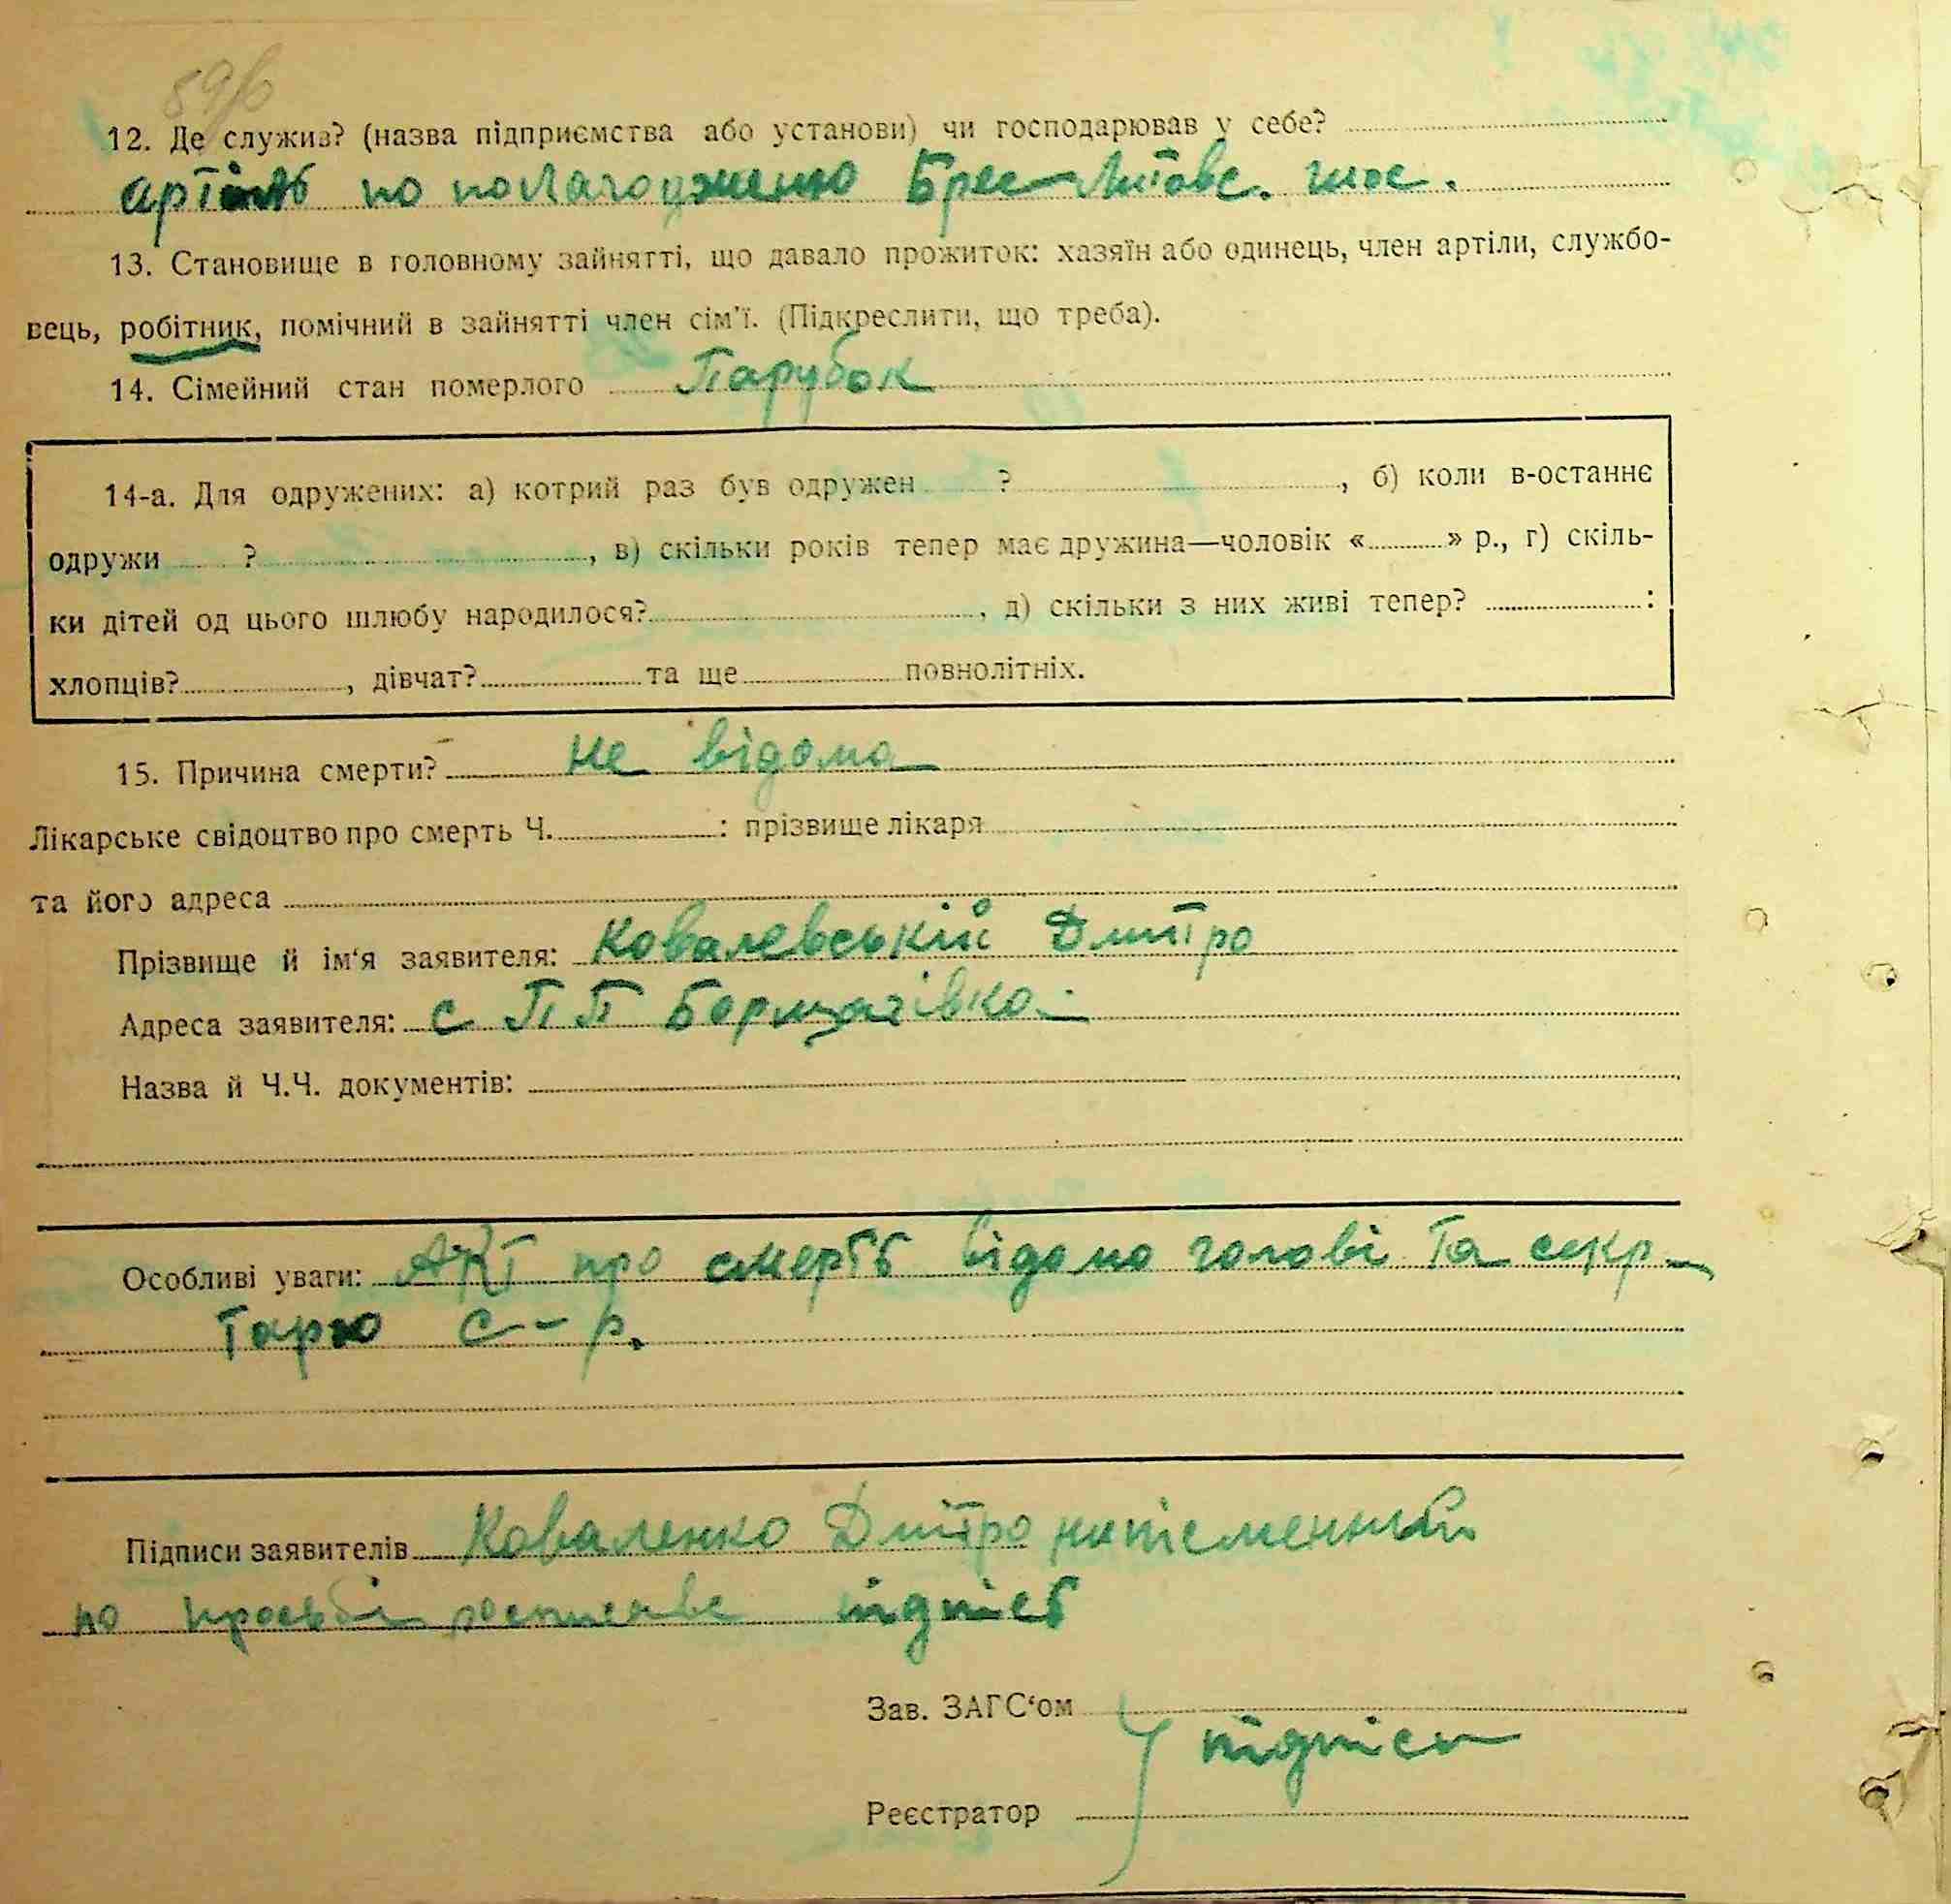 12. Де служив? (назва підприємства або установи) чи господарював у себе?
артіль по полагодженню Брес-Литовс. шос.
13. Становище в головному зайнятті, що давало прожиток: хазяїн або одинець, член артіли, службо-
вець, робітник, помічний в зайнятті член сім'ї. (Підкреслити, що треба).
14. Сімейний стан померлого Парубок
14-а. Для одружених: а) котрий раз був одружен ? , б) коли в-останнє
одружи ? , в) скільки років тепер має дружина—чоловік « » р., г) скіль-
ки дітей од цього шлюбу народилося? , д) скільки з них живі тепер? :
хлопців? , дівчат? та ще повнолітніх.
15. Причина смерти? не відома
Лікарське свідоцтво про смерть Ч. : прізвище лікаря
та його адреса
Прізвище й ім'я заявителя: Ковалевський Дмитро
Адреса заявителя: с П П Борщагівка
Назва й Ч.Ч. документів:
Особливі уваги: Акт про смерть відомо голові та секр-
тарю с-р.
Підписи заявителів Коваленко Дмитро
по просьбі підпісь
Зав. ЗАГС'ом
підписи
Реєстратор